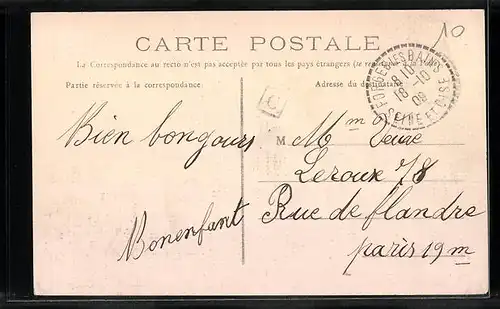 10
CARTE POSTALE
La Correspondance au recto n'est pas acceptée par tous les pays étrangers (se renseigner à la Poste)
Partie réservée à la correspondance.
Adresse du destinataire
FORGES LES BAINS
8 10
18 -10
09
SEINE ET OISE
C
Bien bongours
M Mme Veuve
Leroux 78
Rue de flandre
paris 19m
Bonenfant